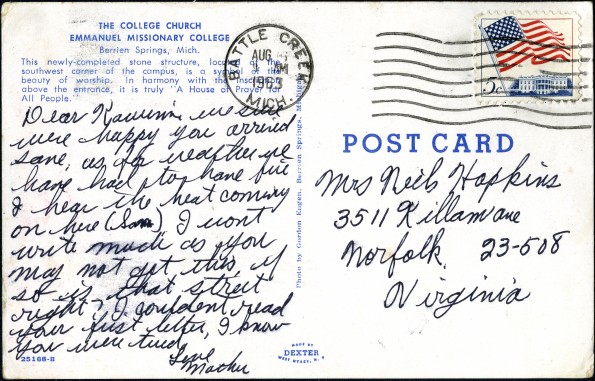 THE COLLEGE CHURCH
EMMANUEL MISSIONARY COLLEGE
Berrien Springs, Mich.
This newly-completed stone structure, located at the
southwest corner of the campus, is a symbol of the
beauty of worship. In harmony with the inscription
above the entrance, it is truly "A House of Prayer for
All People."
Dear we
were happy you arrived
sane, as for weather we
have had to have fire
I hear the heat coming
on here (Son), I wont
write much as you
may not get this, if
so is that street
right? I couldent read
your first letter, I know
you were tired
Love
Mother
25168-B
Photo by Gordon Eugen, Berrien Springs, Michigan
MADE BY
DEXTER
WEST NYACK, N. Y.
BATTLE CREEK
AUG
PM
1963
MICH.
5c
POST CARD
Mrs Neils Hopkins
3511 Killam ave
Norfolk, 23-508
Virginia